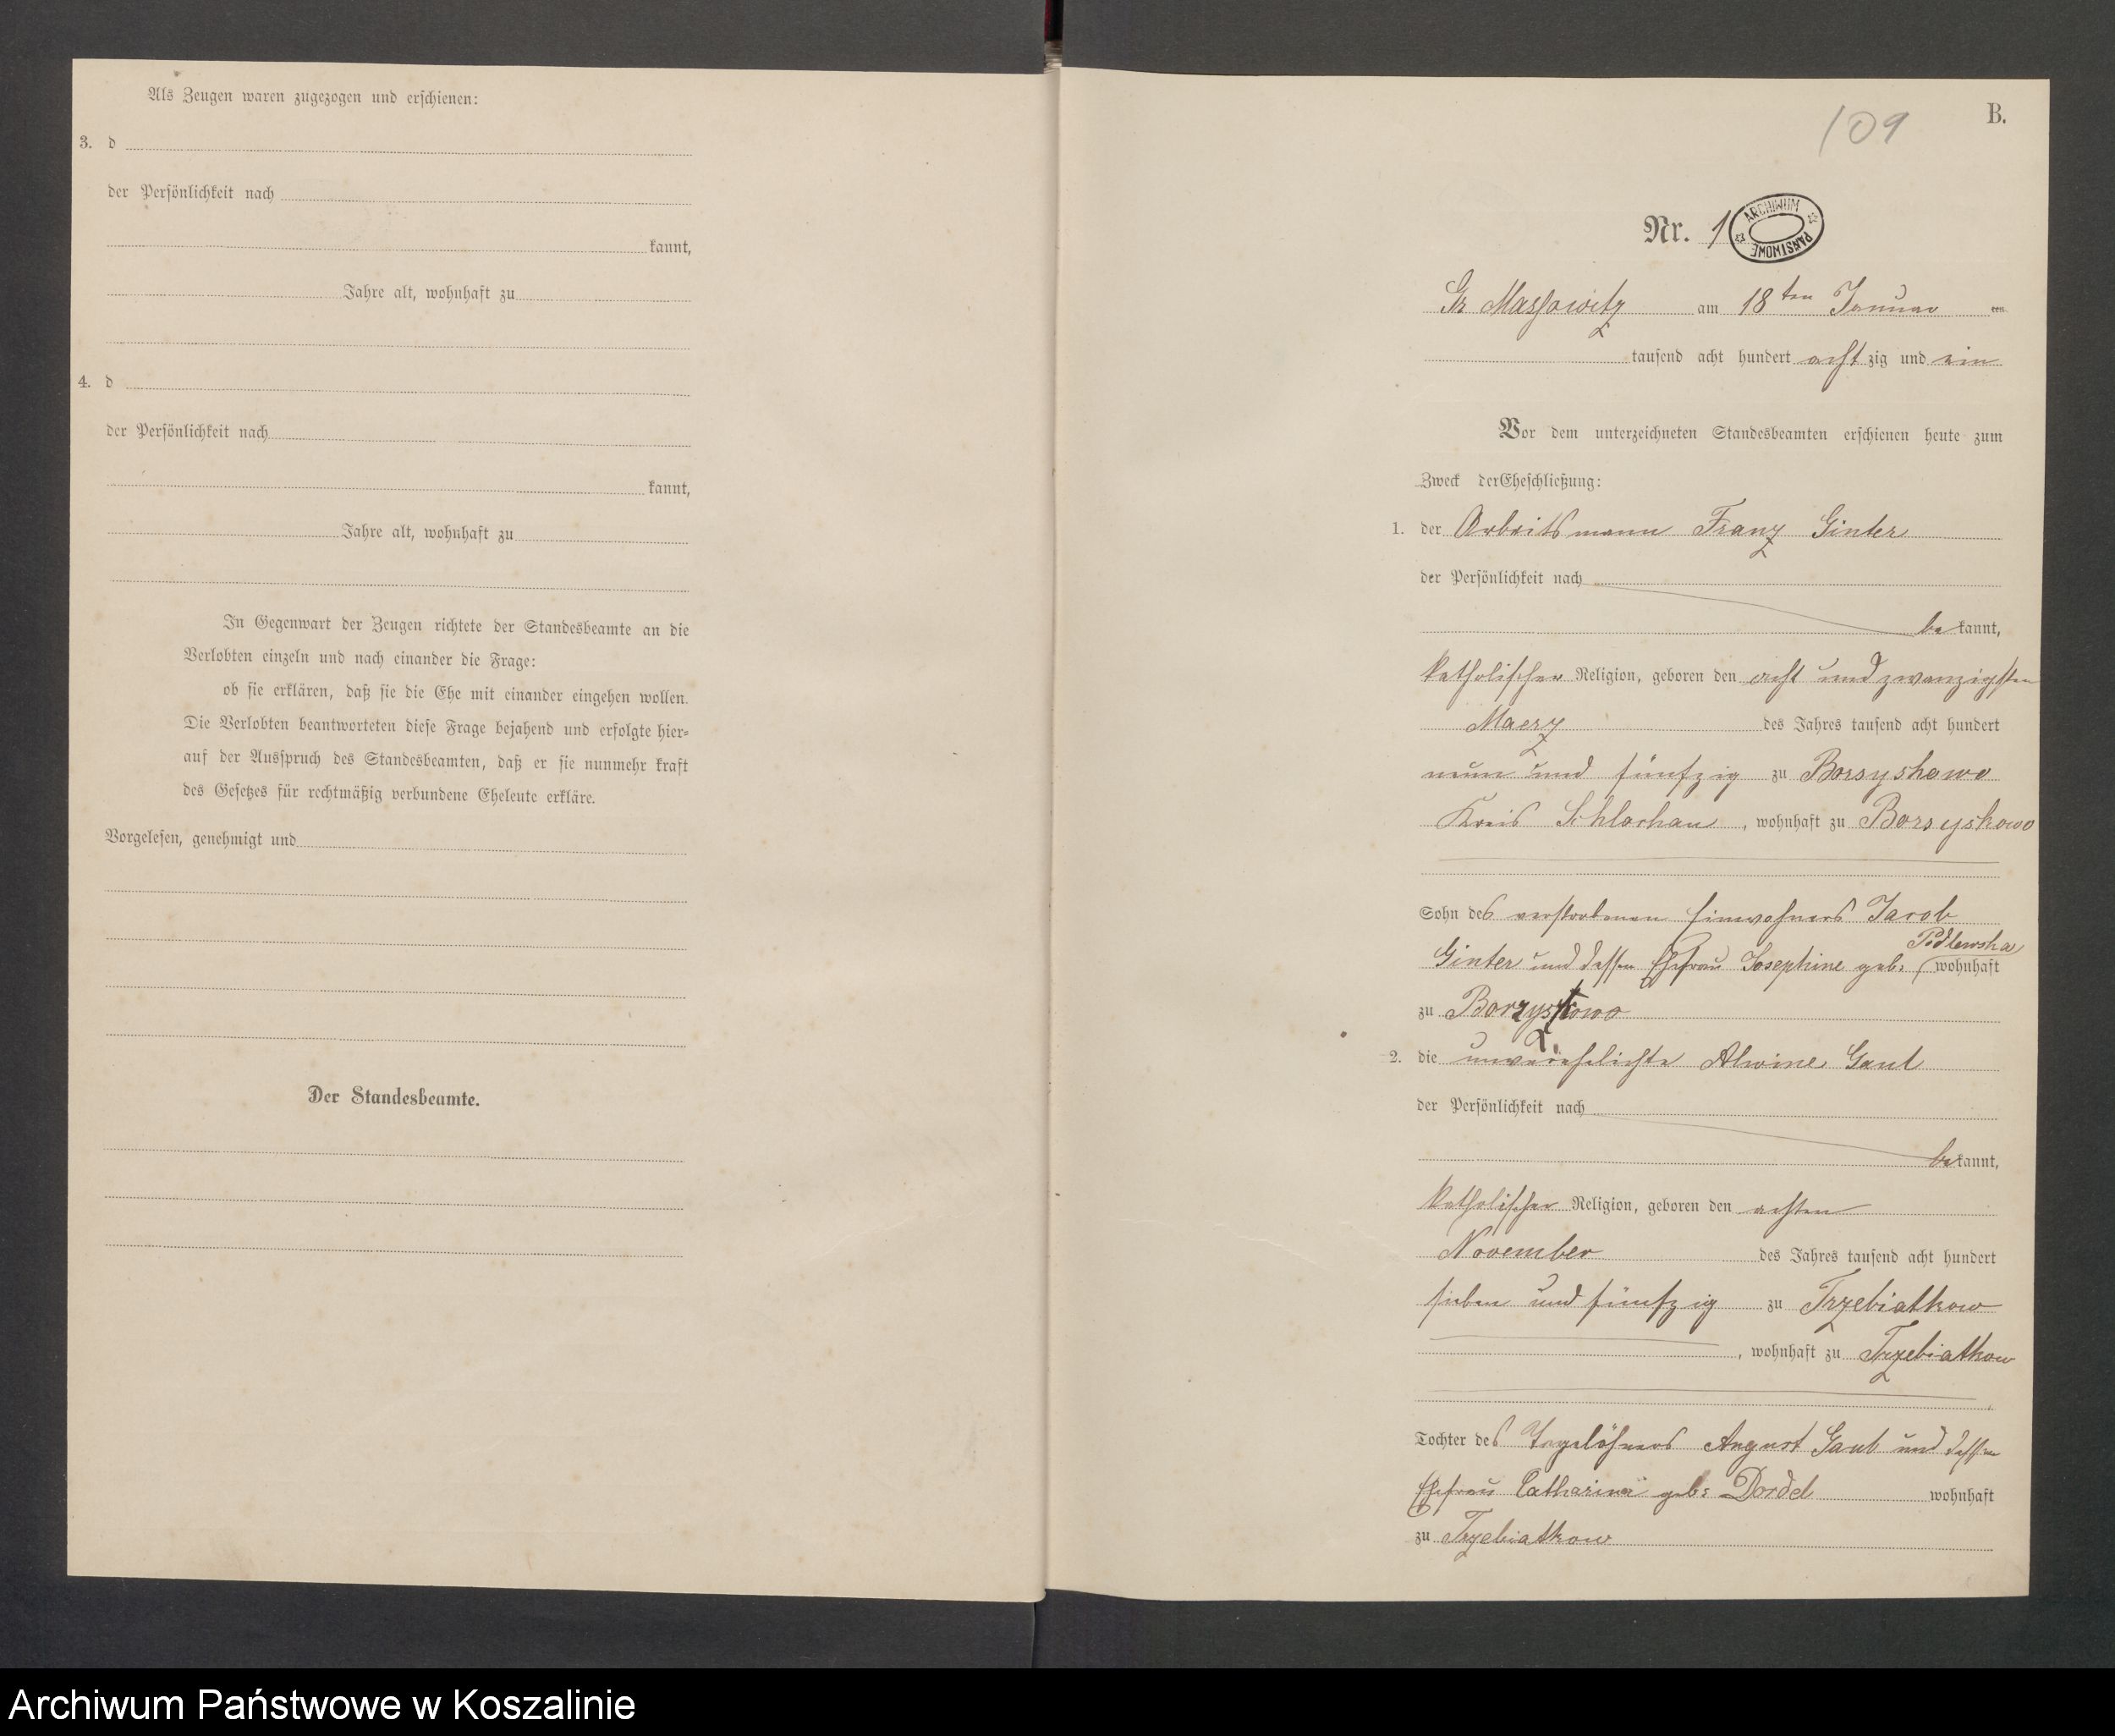 Als Zeugen waren zugezogen und erschienen:
3. d
der Persönlichkeit nach
kannt,
Jahre alt, wohnhaft zu
4. d
der Persönlichkeit nach
kannt,
Jahre alt, wohnhaft zu
In Gegenwart der Zeugen richtete der Standesbeamte an die
Verlobten einzeln und nach einander die Frage:
ob sie erklären, daß sie die Ehe mit einander eingehen wollen.
Die Verlobten beantworteten diese Frage bejahend und erfolgte hier-
auf der Ausspruch des Standesbeamten, daß er sie nunmehr kraft
des Gesetzes für rechtmäßig verbundene Eheleute erkläre.
Vorgelesen, genehmigt und
Der Standesbeamte.
109
B.
Nr. 1
ARCHIWUM PAŃSTWOWE
Gr Massowitz am 18ten Januar
tausend acht hundert achtzig und ein
Vor dem unterzeichneten Standesbeamten erschienen heute zum
Zweck der Eheschließung:
1. der Arbeitsmann Franz Ginter
der Persönlichkeit nach
bekannt,
katholischer Religion, geboren den acht und zwanzigsten
Maerz des Jahres tausend acht hundert
neun und fünfzig zu Borsyskowo
Kreis Schlochau, wohnhaft zu Borsyskowo
Sohn des verstorbenen Einwohners Jacob
Podlewska
Ginter und dessen Ehefrau Josephine geb: wohnhaft
zu Borzyskowo
2. die unverehelichte Alwine Gaul
der Persönlichkeit nach
bekannt,
katholischer Religion, geboren den achten
November des Jahres tausend acht hundert
sieben und fünfzig zu Trzebiatkow
, wohnhaft zu Trzebiatkow
Tochter des Tagelöhners August Gaul und dessen
Ehefrau Catharina geb: Dordel wohnhaft
zu Trzebiatkow
Archiwum Państwowe w Koszalinie